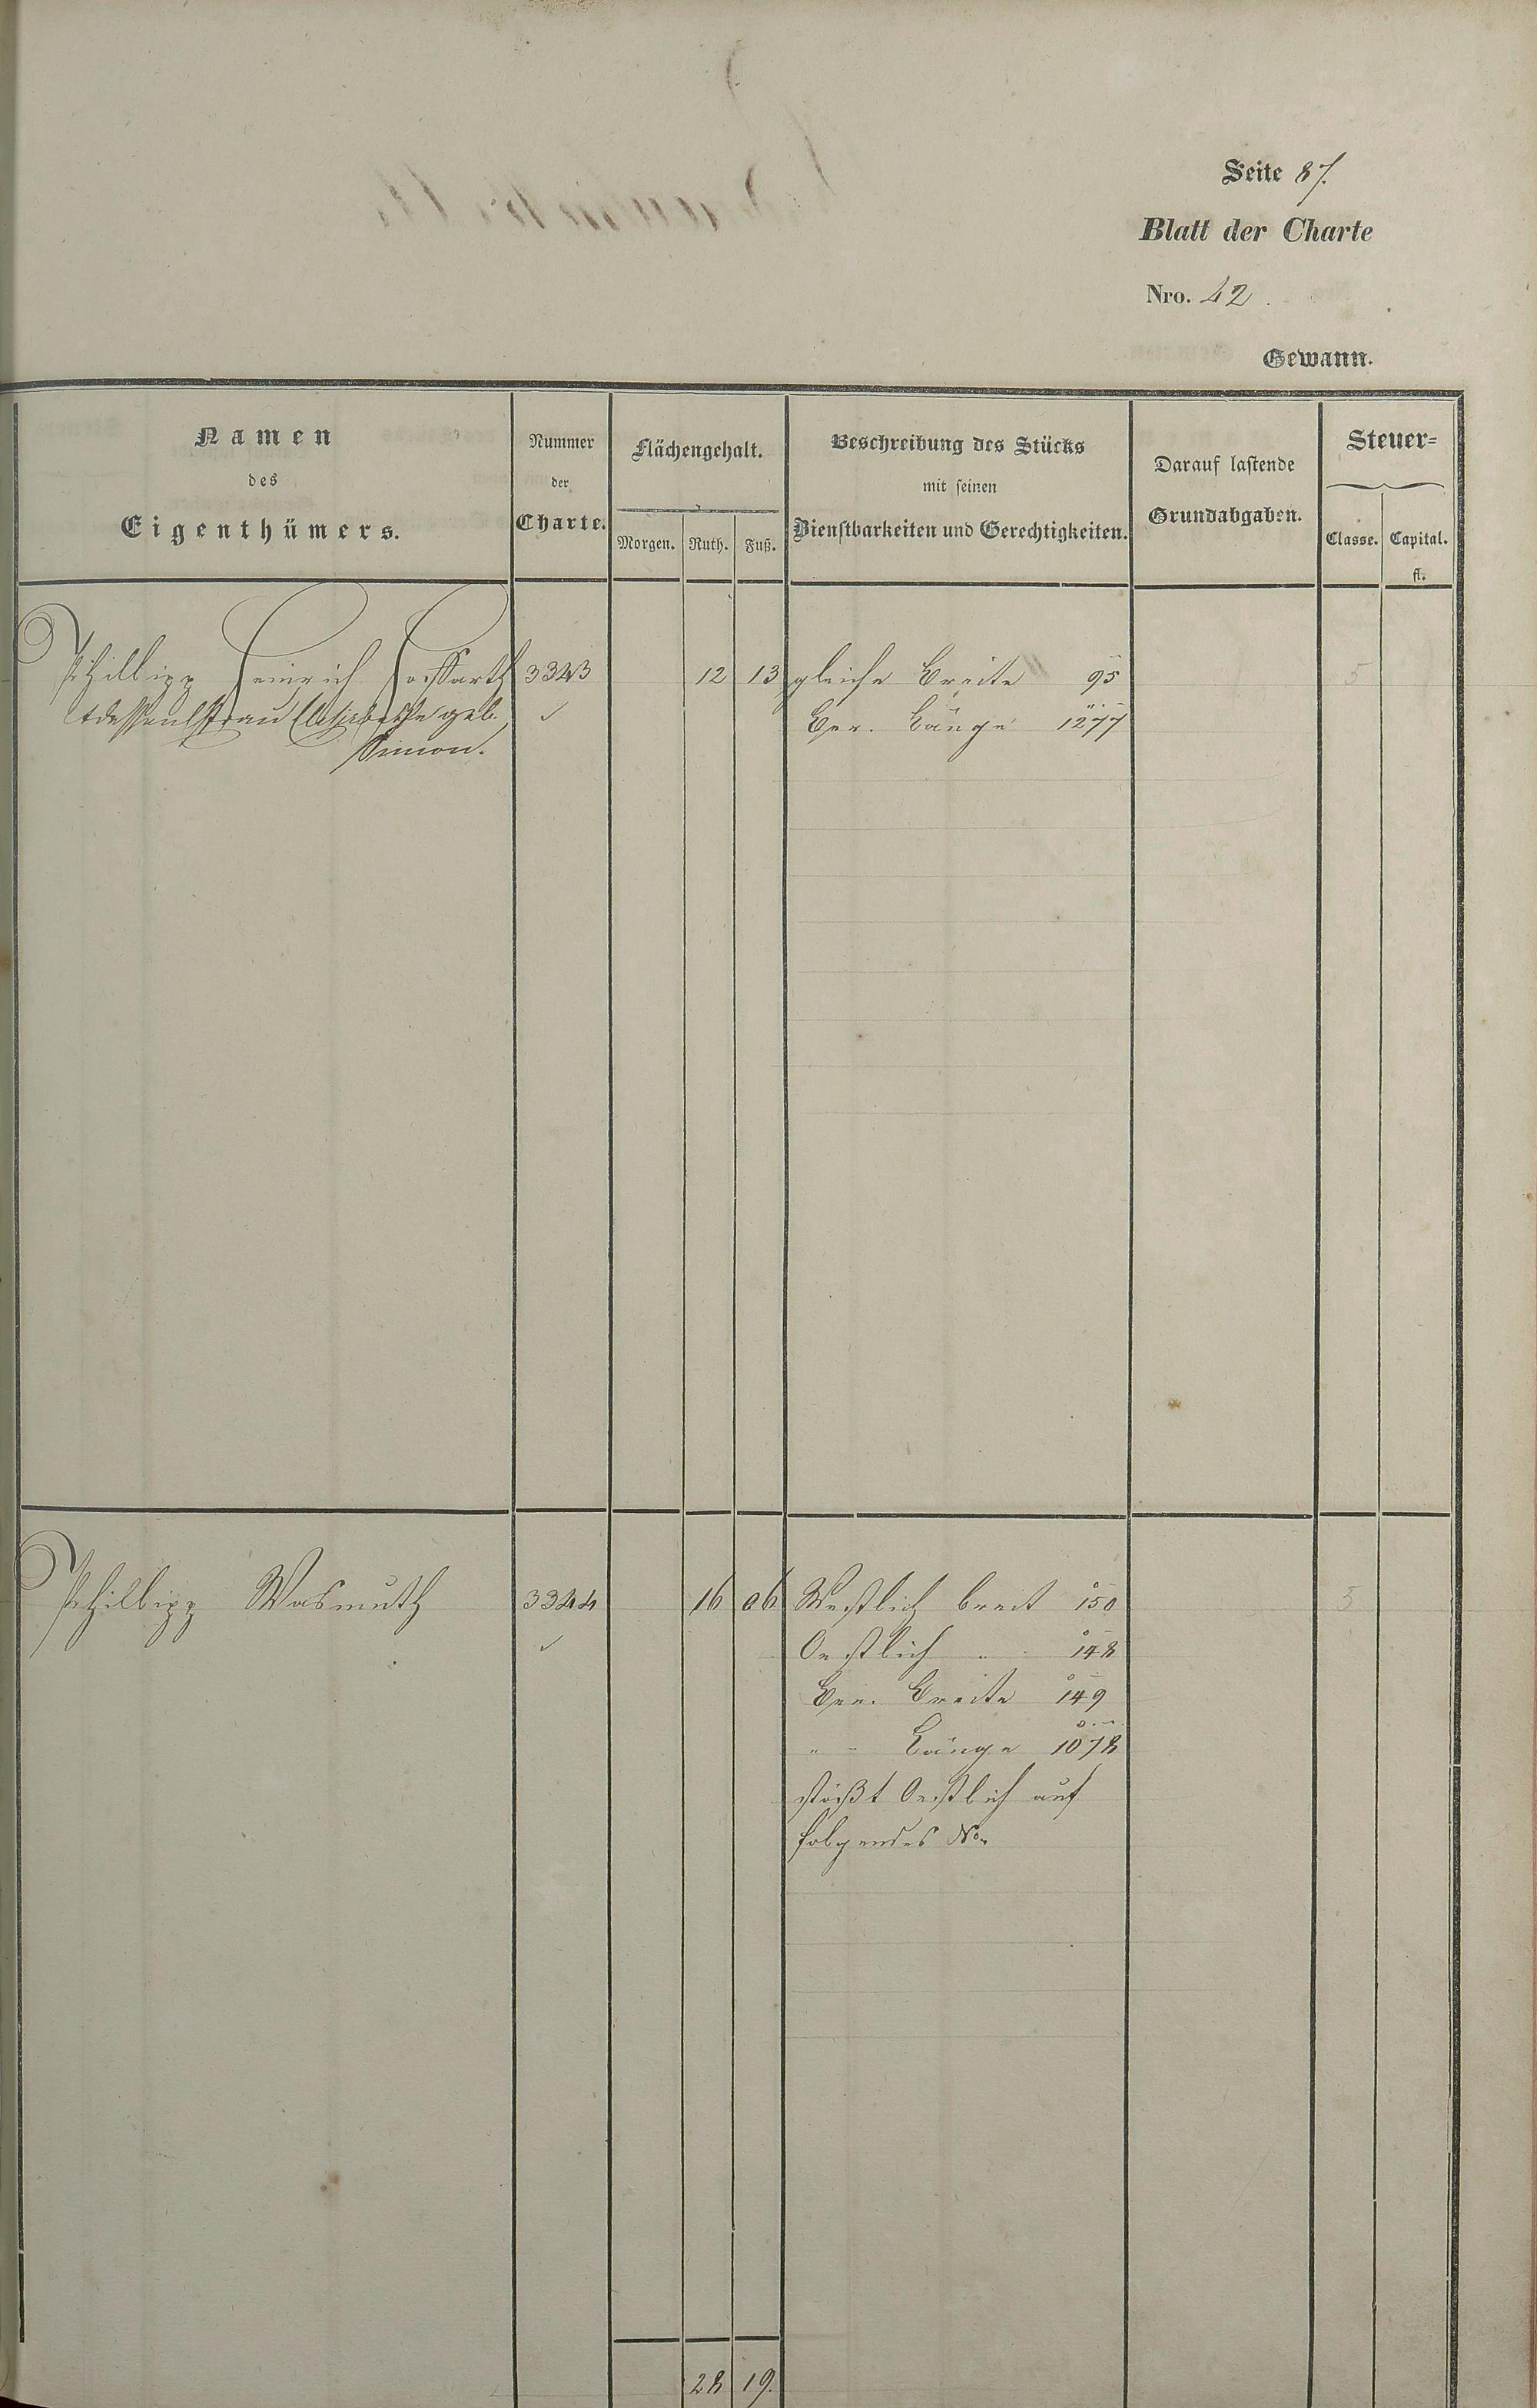 Seite 87.
Blatt der Charte
Nro. 42.
Gewann.
Namen
des
Eigenthümers.
Nummer
der
Charte.
Flächengehalt.
Morgen. Ruth. Fuß.
Beschreibung des Stücks
mit seinen
Dienstbarkeiten und Gerechtigkeiten.
Darauf lastende
Grundabgaben.
Steuer=
Classe. Capital.
fl.
Philipp Heinrich Hossarth 3343 12 13 gleiche Breite 95 5
Elisabethe geb. Ber. Länge 1277
Simon.
Philipp Wasmuth 3344 16 06 Westlich breit 150 5
Oestlich " 148
Ber. Breite 149
" " Länge 1078
stößt Oestlich auf
folgendes No.
28 19.